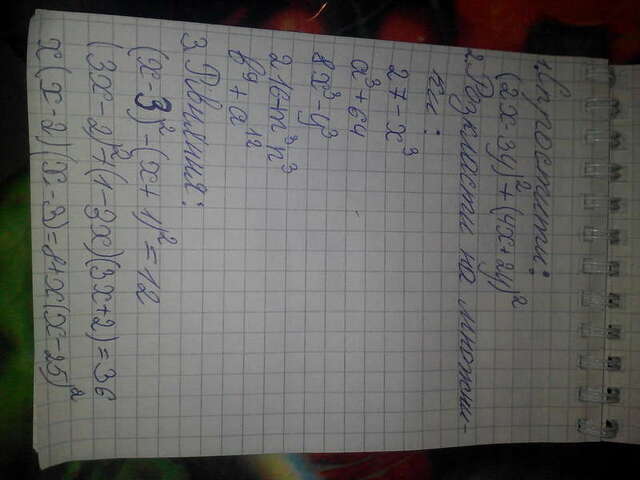 1. Спростити:
(2x-3y)²+(4x+2y)²
2. Розкласти на множни-
ки:
27-x³
a³+64
8x³-y³
216+m³n³
b⁹+a¹²
3. Рівняння:
(x-3)²-(x+1)²=12
(3x-2)²+(1-3x)(3x+2)=36
x(x-2)(x-3)=8+x(x-25)²